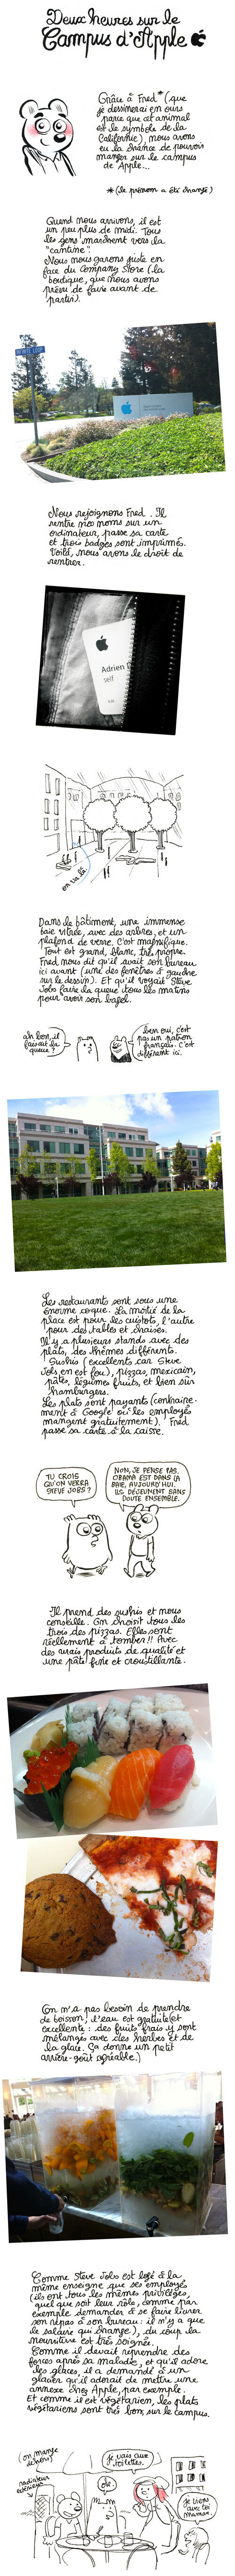 Deux heures sur le
Campus d'Apple
Grâce à Fred* (que
je dessinerai en ours
parce que cet animal
est le symbole de la
Californie), nous avons
eu la chance de pouvoir
manger sur le campus
de Apple...
*(le prénom a été changé)
Quand nous arrivons, il est
un peu plus de midi. Tous
les gens marchent vers la
"cantine".
Nous nous garons juste en
face du Company Store (la
boutique, que nous avons
prévu de faire avant de
partir).
Nous rejoignons Fred. Il
rentre nos noms sur un
ordinateur, passe sa carte
et trois badges sont imprimés.
Voilà, nous avons le droit de
rentrer.
Adrien
self
on va là
Dans le bâtiment, une immense
baie vitrée, avec des arbres, et un
plafond de verre. C'est magnifique.
Tout est grand, blanc, très propre.
Fred nous dit qu'il avait son bureau
ici avant (une des fenêtres à gauche
sur le dessin). Et qu'il voyait Steve
Jobs faire la queue tous les matins
pour avoir son bagel.
ah bon, il
faisait la
queue ?
ben oui, c'est
pas un patron
français. C'est
différent ici.
Les restaurants sont sous une
énorme coque. La moitié de la
place est pour les cuistots, l'autre
pour des tables et chaises.
Il y a plusieurs stands avec des
plats, des thèmes différents.
Sushis (excellents car Steve
Jobs en est fou), pizzas, mexicain,
pâtes, légumes fruits, et bien sûr
hamburgers.
Les plats sont payants (contraire-
ment à Google où les employés
mangent gratuitement). Fred
passe sa carte à la caisse.
TU CROIS
QU'ON VERRA
STEVE JOBS ?
NON, JE PENSE PAS.
OBAMA EST DANS LA
BAIE, AUJOURD'HUI.
ILS DÉJEUNENT SANS
DOUTE ENSEMBLE.
Il prend des sushis et nous
conseille. On choisit tous les
trois des pizzas. Elles sont
réellement à tomber !! Avec
des vrais produits de qualité et
une pâte fine et croustillante.
On n'a pas besoin de prendre
de boisson, l'eau est gratuite (et
excellente : des fruits frais y sont
mélangés avec des herbes et de
la glace. Ça donne un petit
arrière-goût agréable.)
Comme Steve Jobs est logé à la
même enseigne que ses employés
(ils ont tous les mêmes privilèges,
quel que soit leur rôle, comme par
exemple demander à se faire livrer
son repas à son bureau : il n'y a que
le salaire qui change), du coup la
nourriture est très soignée.
Comme il devait reprendre des
forces après sa maladie, et qu'il adore
les glaces, il a demandé à un
glacier qu'il adorait de mettre une
annexe chez Apple, par exemple.
Et comme il est végétarien, les plats
végétariens sont très bon sur le campus.
(on mange
dehors)
radiateur
extérieur
ok.
Je vais aux
toilettes.
Je viens
avec toi
maman.